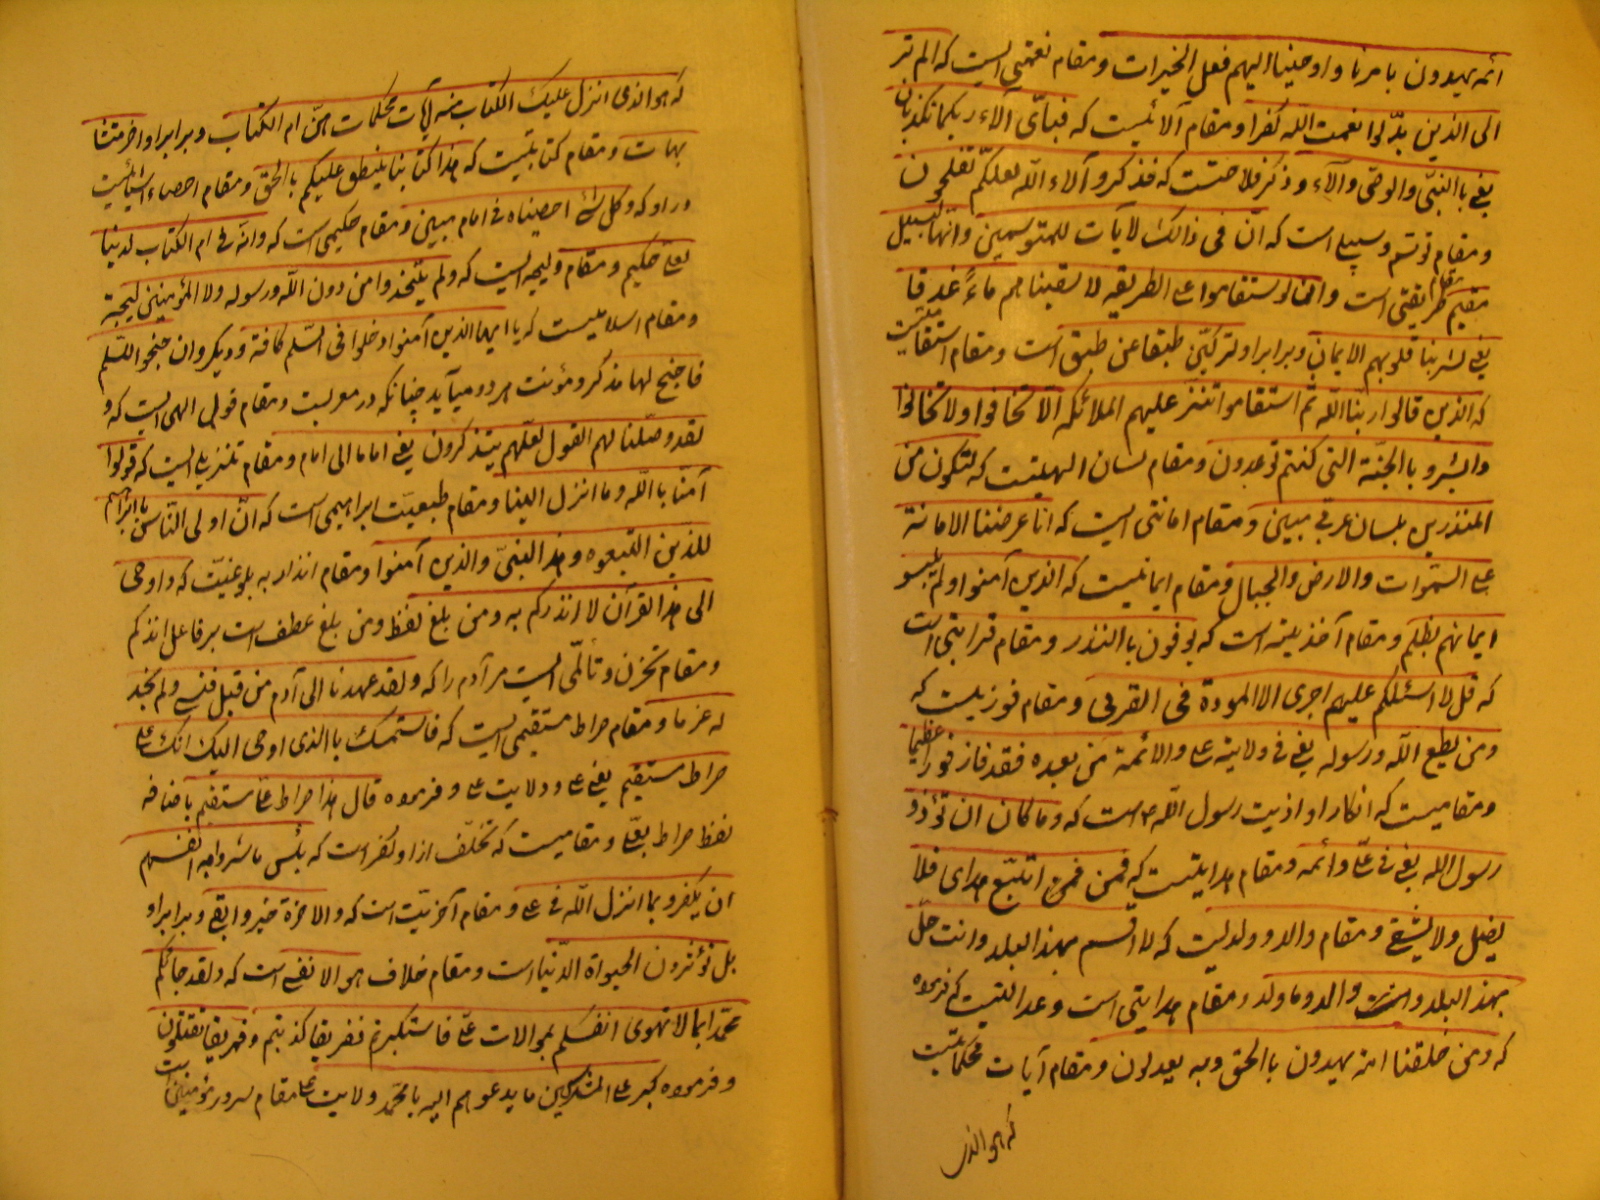 ائمه یهدون بامرنا و اوحینا الیهم فعل الخیرات و مقام نعمتی است که الم تر
الی الذین بدّلوا نعمت الله کفرا و مقام آلائیست که فبأی آلاء ربکما تکذبان
یعنی باالنبیّ والوصیّ و آلاء و ذکر فلاحتست که فذکروا آلاء الله لعلکم تفلحون
و مقام توسّم و سبیل است که انّ فی ذالک لآیات للمتوسمین و انّها لبسبیل
مقیم و مقام طریقتی است و ان لو استقاموا علی الطریقه لاسقیناهم ماءً غدقا
یعنی لشربنا قلوبهم الایمان و برابر او لترکبنّ طبقا عن طبق است و مقام استقامتیست
که الذین قالوا ربنا الله ثم استقاموا تتنزّل علیهم الملائکه الّا تخافوا ولا تخافوا
وابشروا باالجنّة التی کنتم توعدون و مقام لسان الهیتست که لتکون من
المنذرین بلسان عربی مبین و مقام امانتی است که انا عرضنا الامانة
علی السموات والارض والجبال و مقام ایمانیست که الذین آمنوا و لم یلبسوا
ایمانهم بظلم و مقام آخذیته است که یوفون باالنذر و مقام قرابتی است
که قل لا اسئلکم علیهم اجری الا المودة فی القربی و مقام فوزیست که
و من یطع الله و رسوله یعنی فی ولایته علی والائمة من بعده فقد فاز فوزا عظیما
و مقامیست که انکار او اذیت رسول الله است که و ما کان ان تؤذو
رسول الله یعنی فی علیّ و ائمه و مقام هدایتست که فمن اتبّع هدای فلا
یضل ولا یشقی و مقام والد و ولدیست که لا اقسم بهذا البلد وانت حلّ
بهذا البلد و والد و ما ولد و مقام هدایتی است و عدالتیست که فرموده
که و من خلقنا امة یهدون باالحق و به یعدلون و مقام آیات محکماتیست
که هو الذی
که هو الذی انزل علیک الکتاب منه آیات محکمات هنّ ام الکتاب و برابر او اخر متشا
بهات و مقام کتابیست که هذا کتابنا ینطق علیکم باالحق و مقام احصاء اشیائیست
در او که و کل شئ احصیناه فی امام مبین و مقام حکیمی است که وانّه فی ام الکتاب لدینا
لعلی حکیم و مقام ولیجه ایست که ولم یتّخذوا من دون الله و رسوله ولا المؤمنین ولیجة
و مقام اسلامیست که یا ایها الذین آمنوا ادخلوا فی السّلم کافة و دیگر وان جنحو اللسّلم
فاجنح لها مذکر و مؤنث هر دو میآید چنانکه در معربست و مقام قول الهی است که و
لقد وصّلنا لهم القول لعلّهم یتذکرون یعنی اماما الی امام و مقام تنزیلی است که قولوا
آمنّا باالله و ما انزل الینا و مقام طبعیّت ابراهیمی است که انّ اولی النّاس باابراهیم
للذین التبعوه و هذا النبیّ والذین آمنوا و مقام انذار به بلوغیّت که و اوحی
الی هذا القرآن لا انذرکم به و من بلغ لفظ و من بلغ عطف است بر فاعل انذرکم
و مقام تحزن و تألّمی است مر آدم را که و لقد عهدنا الی آدم من قبل فنسی و لم نجد
له عزما و مقام صراط مستقیمی است که فاستمسک باالذی اوحی الیک انک علی
صراط مستقیم یعنی علی و ولایت علی و فرموده قال هذا صراط علیّ مستقیم باضافه
لفظ صراط بعلّی و مقامیست که تخلّف از او کفر است که بئس ما شروا به انفسهم
ان یکفرو بما انزل الله فی علی و مقام آخریّت است که والاخرة خیر و ابقی و برابر او
بل تؤثرون الحیواة الدّنیا است و مقام خلاف هوالانفسی است که و لقد جائکم
محمّد بما لا تهوی انفسکم بموالات علیّ فاستکبرتم ففریقا کذبتم و فریقا تقتلون
و فرموده کبر علی المشرکین ما یدعوهم الیه یامحمّد ولایت علی و مقام سرور مؤمنین است